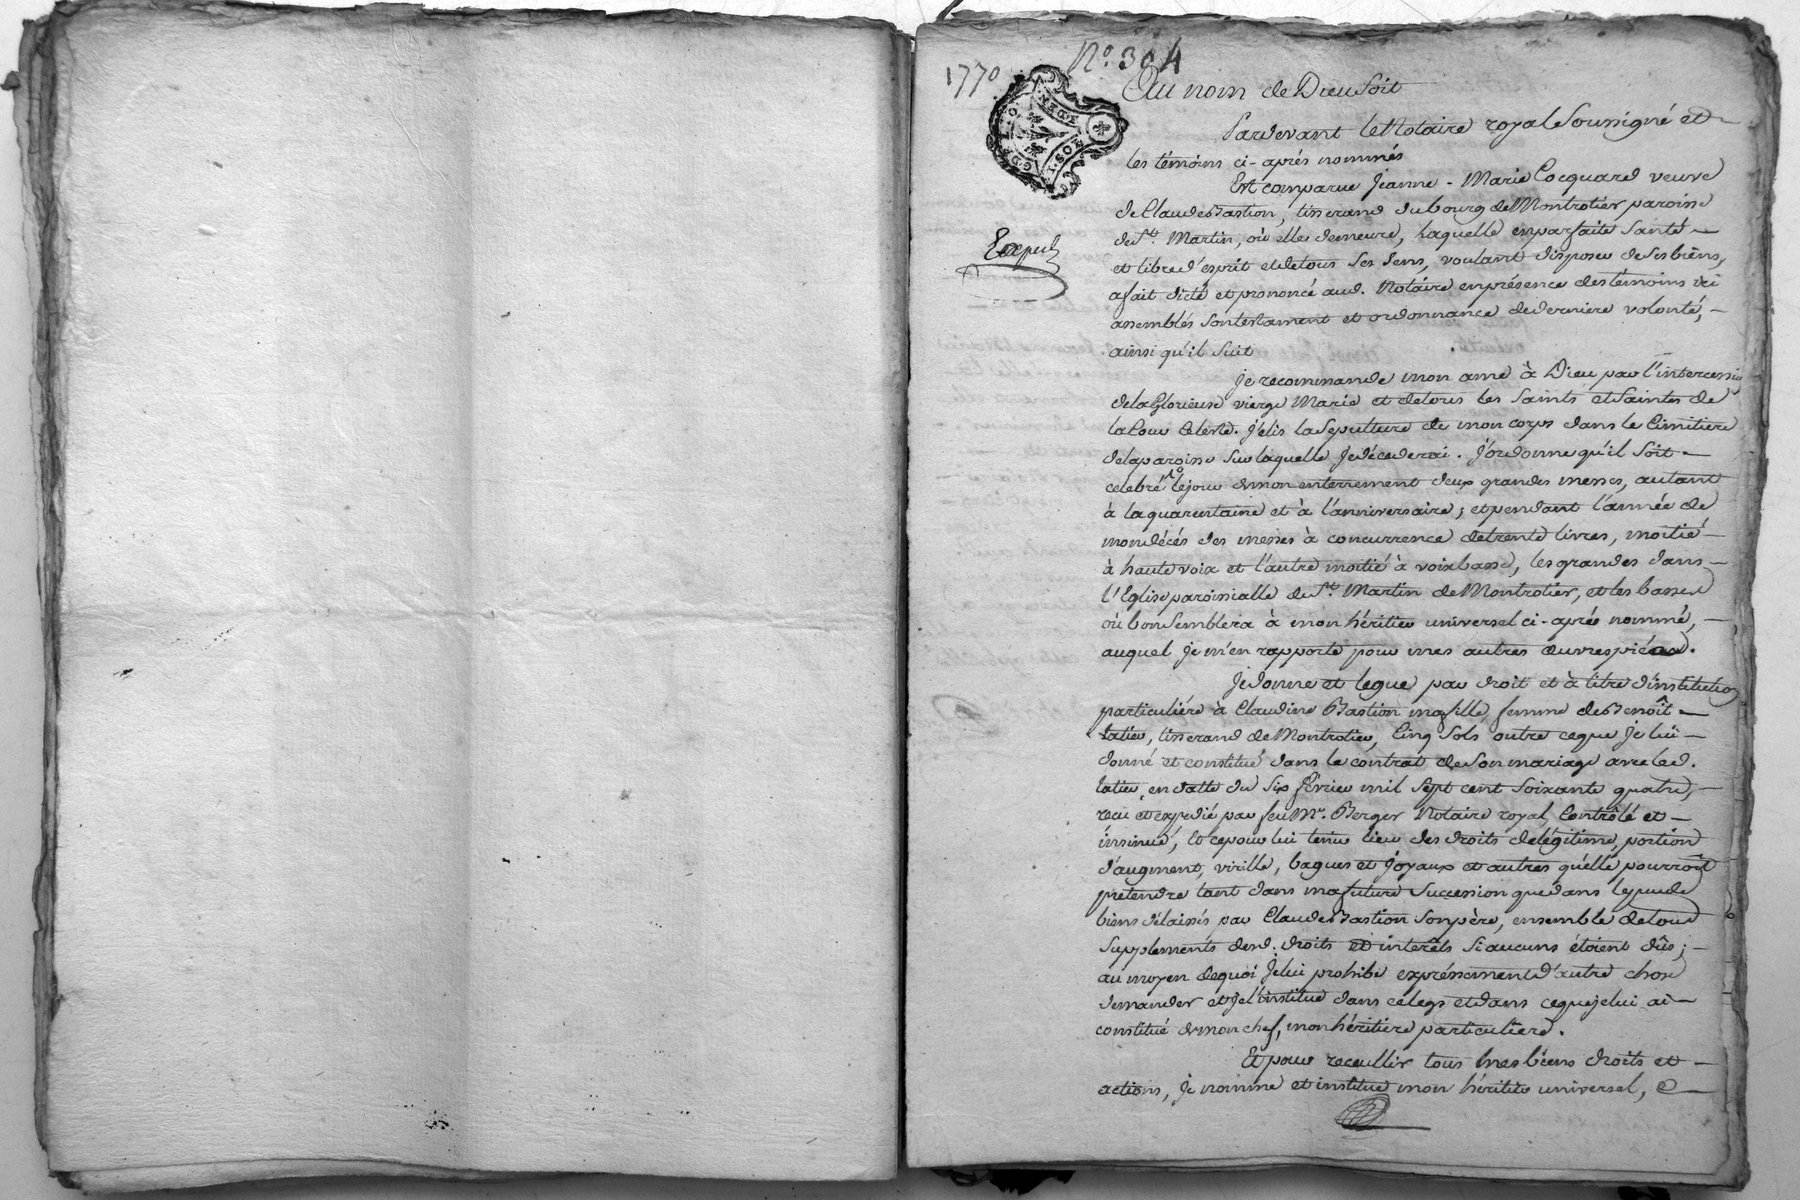 1770
N.° 304
G.DE.LYO
Au nom de Dieu soit
Pardevant le Notaire royal soussigné et
les témoins ci-aprés nommés
Est comparue Jeanne-Marie Cocquard veuve
de Claude Bastion, tisserand du bourg de Montrotier paroisse
de St. Martin, où elle demeure, laquelle en parfaite santé
et libre d'esprit et de tous ses sens, voulant disposer de ses biens,
a fait dicté et prononcé aud. Notaire en présence des témoins ici
assemblés son testament et ordonnance de derniere volonté,
ainsi qu'il suit
Expéd
Je recommande mon ame à Dieu par l'intercessio
de la Glorieuse vierge Marie et de tous les Saints et Saintes de
la Cour Celeste. j'élis la Sepulture de mon corps dans le Cimitiere
de la paroisse sur laquelle je décederai. J'ordonne qu'il soit
celebré le jour de mon enterrement deux grandes messes, autant
à la quarentaine et à l'anniversaire; et pendant l'année de
mon décés des messes à concurrence de trente livres, moitié
à haute voix et l'autre moitié à voix basse, les grandes dans
l'Eglise paroissialle de St. Martin de Montrotier, et les basses
où bon semblera à mon héritier universel ci-aprés nommé,
auquel je m'en rapporte pour mes autres œuvres pies.
Je donne et legue par droit et à titre d'institutio
particuliére à Claudine Bastion ma fille, femme de Benoît
latieu, tisserand de Montrotier, Cinq Sols outre ce que je lui
donné et constitué dans le contrat de son mariage avec led.
latieu, en datte du six fevrier mil sept cent soixante quatre,
recu et expedié par feu Mr. Berger Notaire royal, Contrôlé et
insinué, et ce pour lui tenir lieu des droits de légitime, portion
d'augment, virille, bagues et joyaux et autres qu'elle pourroit
pretendre tant dans ma future succession que dans le peu de
biens délaissés par Claude Bastion son père, ensemble de tous
supplements desd. droits et interêts si aucuns étoient dûs;
au moyen de quoi je lui prohibe expréssement d'autre chose
demander et je l'institue dans ce legs et dans ce que je lui ai
constitué de mon chef, mon héritiere particuliere.
Et pour receullir tous mes biens droits et
actions, je nomme et institue mon héritier universel,